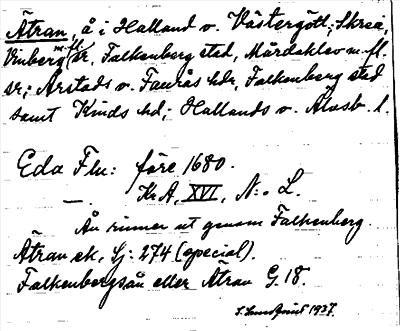 Ätran, å i Halland o. Västergötl.; Skrea,
Vinberg m. fl. sr, Falkenberg stad, Mårdaklev m. fl.
sr; Årstads o. Faurås hdr, Falkenberg stad
samt Kinds hd; Hallands o. Älvsb. l.
Eda Flu: före 1680.
— KrA, XVI, N:o L.
Ån rinner ut genom Falkenberg.
Ätran ek, Lj: 274 (special).
Falkenbergsån eller Ätran G. 18.
1937.